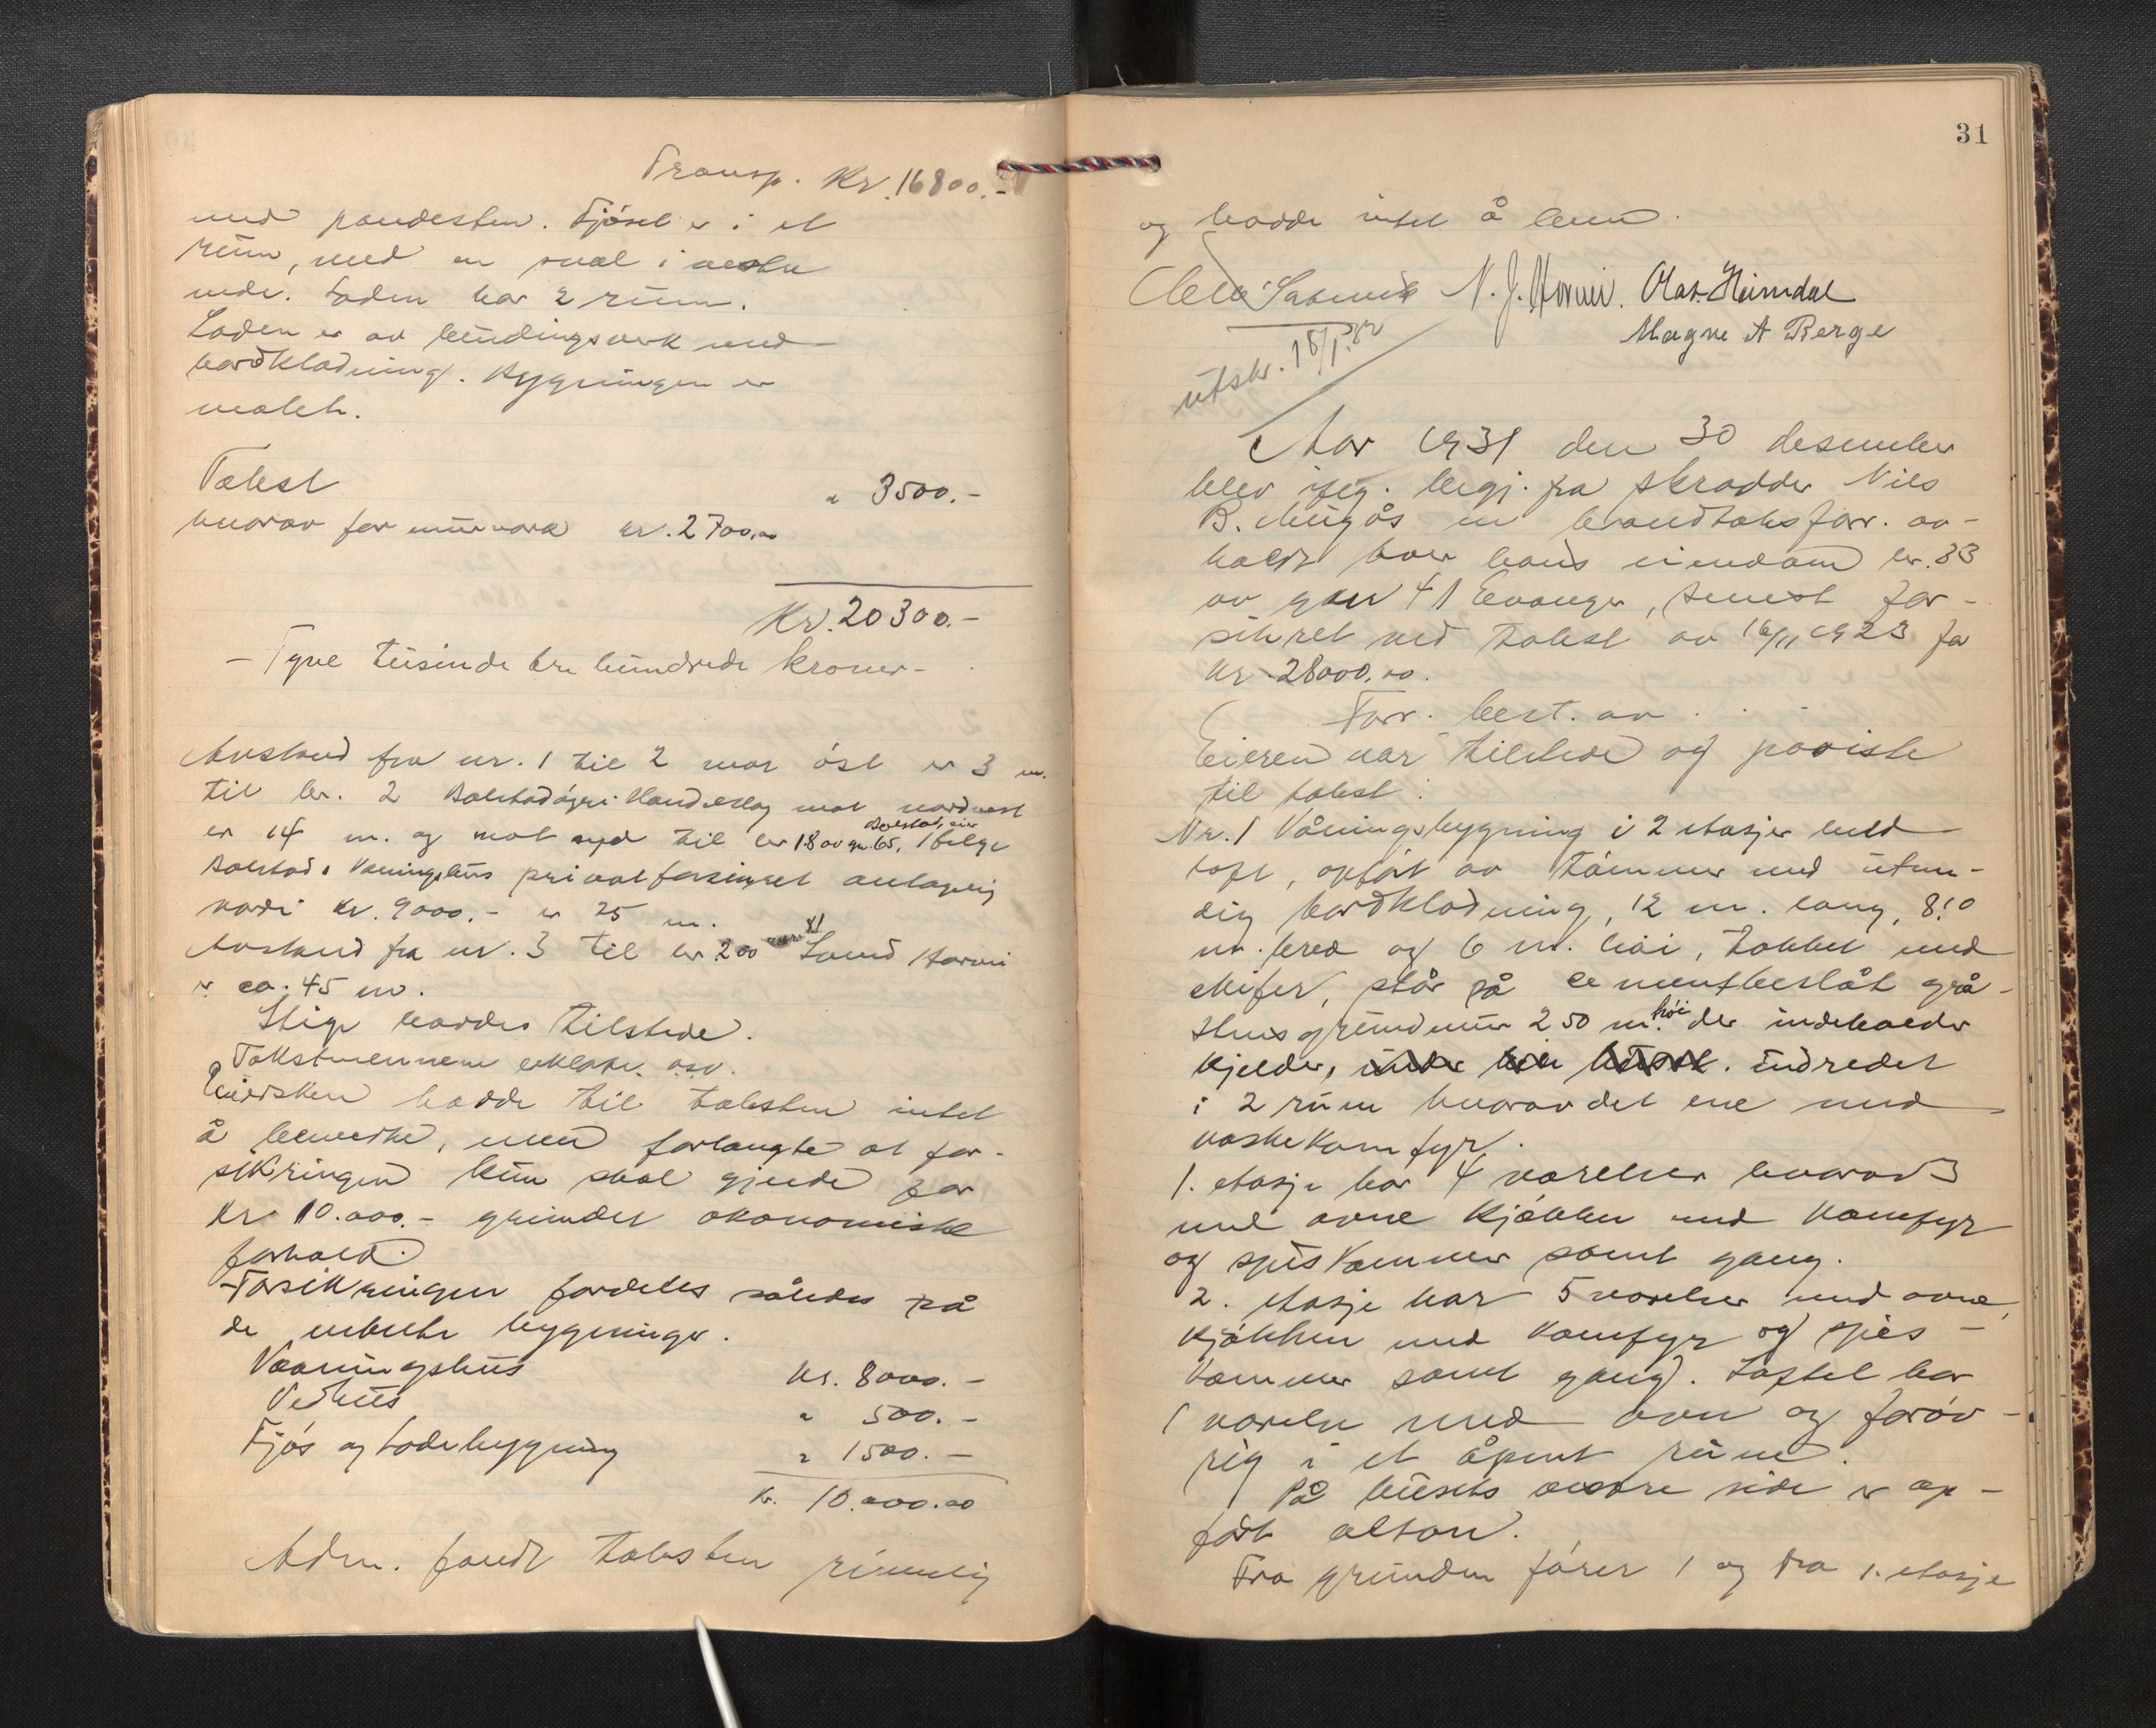 Transp. Kr. 16800.-
med pandesten. Fjöset er i et
rum, med en sval i vestre
ende. Loden har 2 rum.
Loden er av bindingsverk med
bordklædning. Bygningen er
malt.
Takst " 3500.-
hvorav for murværk kr. 2700,00
Kr. 20300.-
- Tyve tusinde tre hundrede kroner -
Avstand fra nr. 1 til 2 mot öst er 3 m.
til br. 2 Bolstadöyri Handelslag mot nordvest
er 14 m. og mot syd til br 18 av gn. 65, Bolstad, eier Helge
Bolstad, Vaningshus privatforsikret antagelig
værdi kr. 9000.- er 25 m.
Avstand fra nr. 3 til br. 200 Horvei
er ca. 45 m.
Stige haddes tilstede.
Takstmennene erklærte osv.
Eiersken hadde til taksten intet
å bemerke, men forlangte at for-
sikringen kun skal gjelde for
Kr 10.000.- grundet økonomiske
forhold.
Forsikringen fordeles således på
de enkelte bygninger.
Vaaningshus Kr. 8000.-
Vedhus " 500.-
Fjös og lodebygning " 1500.-
Kr. 10.000.00
Adm. fandt taksten rimelig
31
og hadde intet å bem.
N. J. Horvei. Olav Heimdal
Magne A Berge
utskr. 18/1.32
Aar 1931 den 30 desember
blev ifög. begj. fra skrædder Nils
B. Mugås en brandtakstforr. av-
holdt over hans eiendom br. 33
av gnr 41 Evanger, senest for-
sikret ved takst av 16/11 1923 for
kr 28000,00.
Forr. best. av . . .
Eieren var tilstede og paaviste
til takst:
Nr. 1 Våningsbygning i 2 etasjer med
loft, opfört av tömmer med utven-
dig bordklædning, 12 m. lang, 8.10
m. bred og 6 m. høi, tækket med
skifer, står på cementbeslåt grå-
stensgrundmur 2.50 m. høi der indeholder
kjelder, indredet
i 2 rum hvorav det ene med
vaskekomfyr.
1. etasje har 4 værelser hvorav 3
med ovne kjökken med komfyr
og spiskammer samt gang.
2. etasje har 5 værelser med ovne,
kjökken med komfyr og spis-
kammer samt gang. Loftet har
1 værelse med ovn og foröv-
rig i et åpent rum.
På husets vestre side er op-
fört altan.
Fra grunden förer 1 og fra 1. etasje